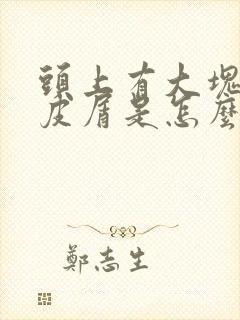 頭上有大塊
皮屑是怎麼
鄭志生